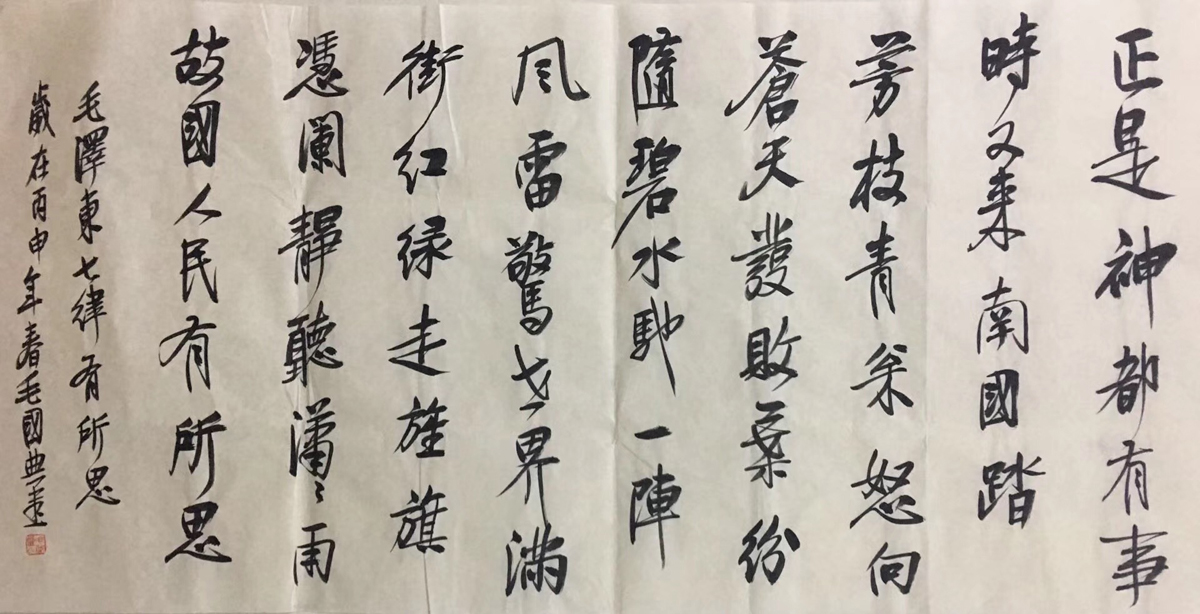 正是神都有事
時又来南國踏
芳枝青枀怒向
蒼天發敗葉紛
隨碧水馳一陣
風雷驚世界满
街红绿走旌旗
憑闌靜聽瀟々雨
故國人民有所思
毛澤東七律有所思
歲在丙申年春毛國典書